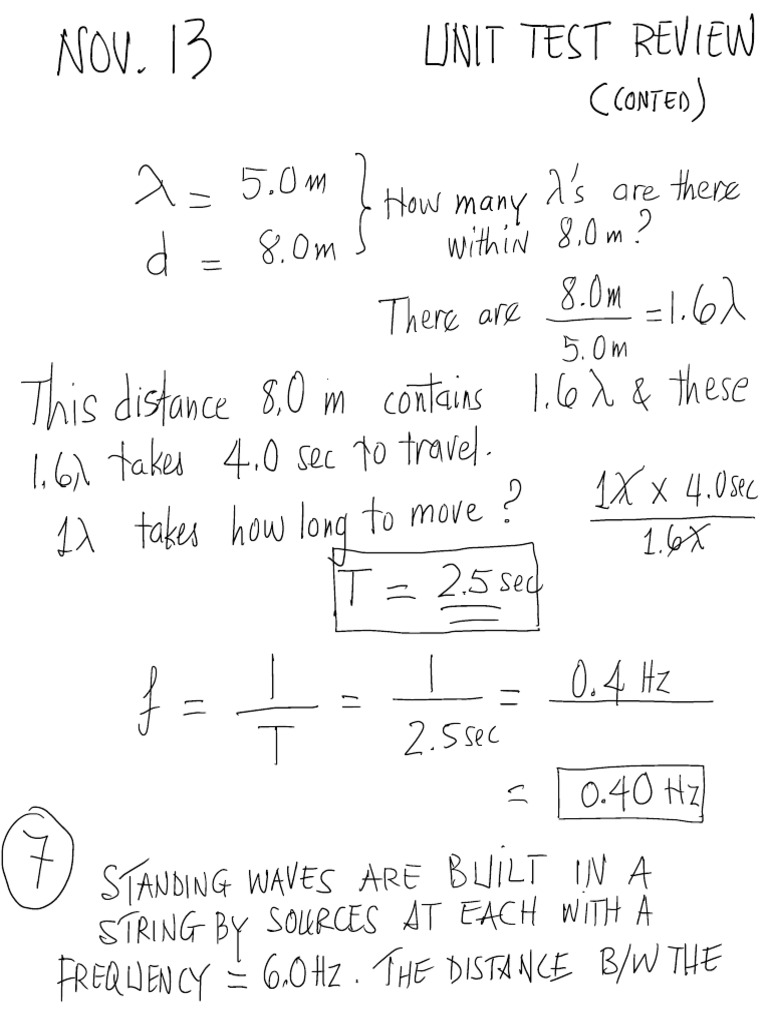 NOV. 13
UNIT TEST REVIEW
(CONTED)
λ = 5.0 m } How many λ's are there
d = 8.0 m within 8.0 m?
There are 8.0m / 5.0m = 1.6λ
This distance 8.0 m contains 1.6 λ & these
1.6λ takes 4.0 sec to travel.
1λ takes how long to move? 1λ x 4.0sec / 1.6λ
T = 2.5 sec
f = 1 / T = 1 / 2.5 sec = 0.4 Hz
= 0.40 Hz
7
STANDING WAVES ARE BUILT IN A
STRING BY SOURCES AT EACH WITH A
FREQUENCY = 6.0 HZ. THE DISTANCE B/W THE